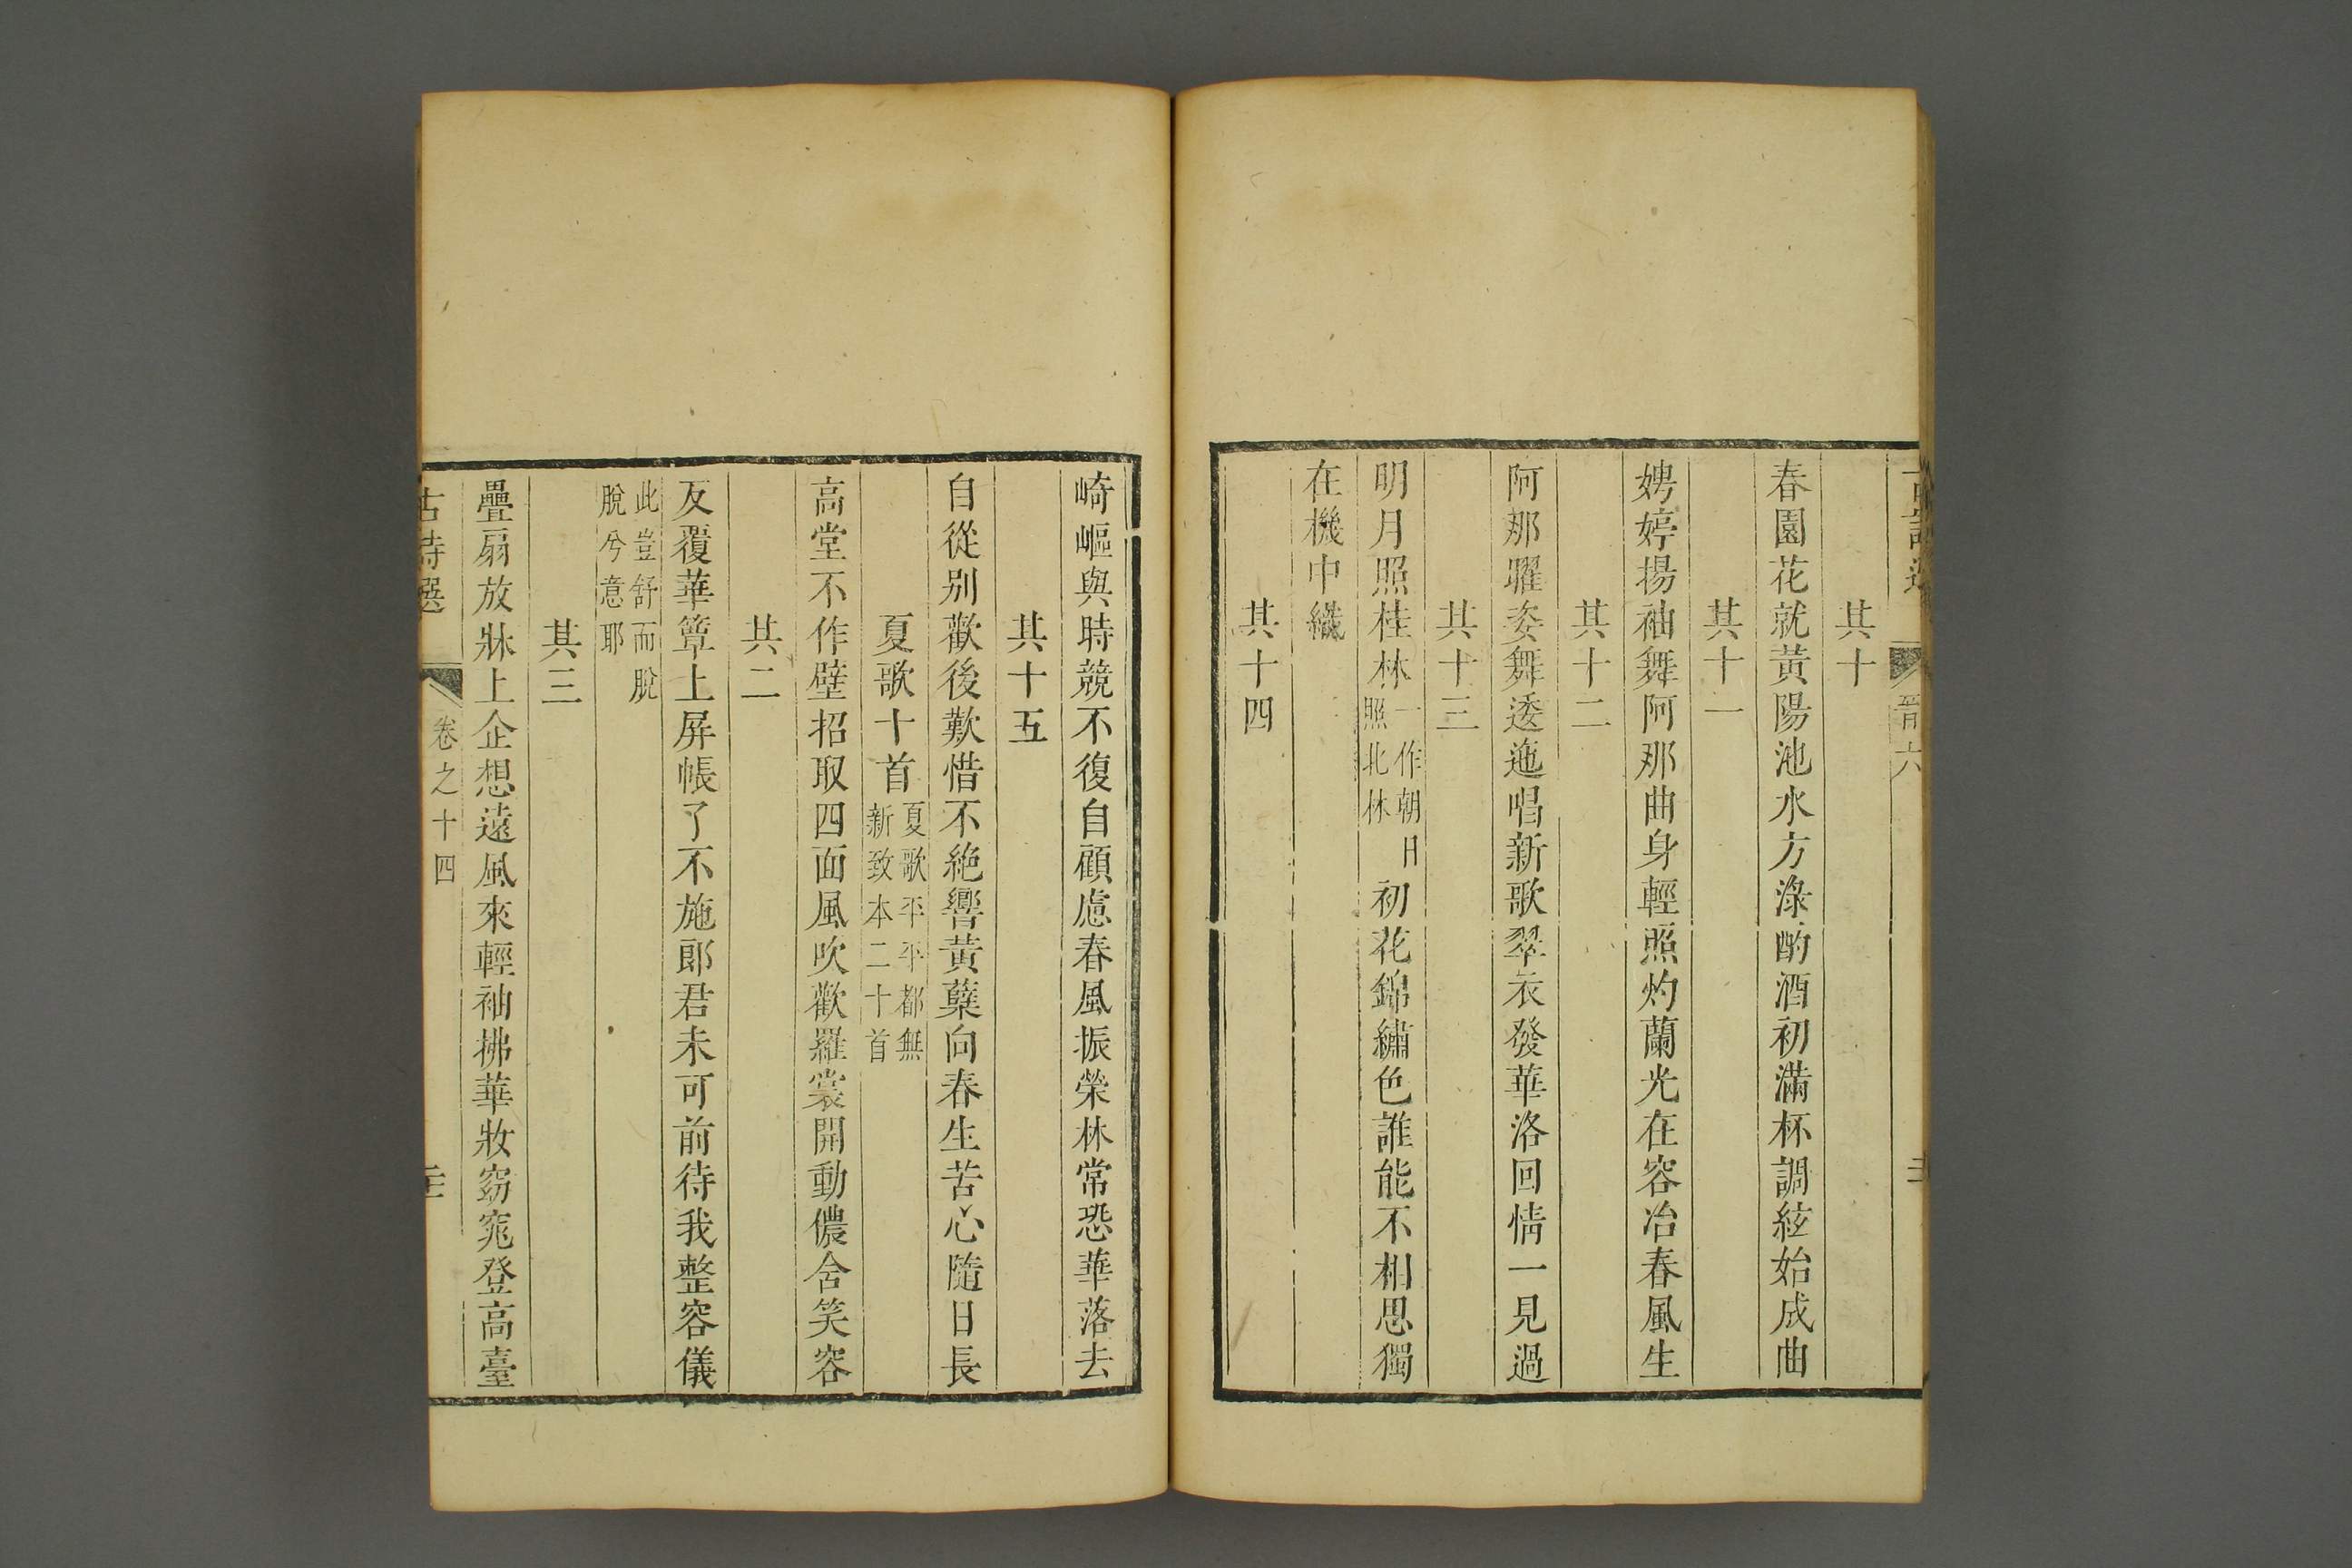 晉六
其十
春園花就黃陽池水方淥酌酒初滿杯調絃始成曲
其十一
娉婷揚袖舞阿那曲身輕照灼蘭光在容冶春風生
其十二
阿那曜姿舞逶迤唱新歌翠衣發華洛回情一見過
其十三
明月照桂林一作朝日照北林初花錦繡色誰能不相思獨
在機中織
其十四
崎嶇與時競不復自顧慮春風振榮林常恐華落去
其十五
自從别歡後歎惜不絶響黃蘗向春生苦心隨日長
夏歌十首夏歌平平都無新致本二十首
高堂不作壁招取四面風吹歡羅裳開動儂含笑容
其二
反覆華簟上屏帳了不施郎君未可前待我整容儀
此豈舒而脫脫兮意耶
其三
疊扇放牀上企想遠風來輕袖拂華妝窈窕登高臺
古詩選 卷之十四